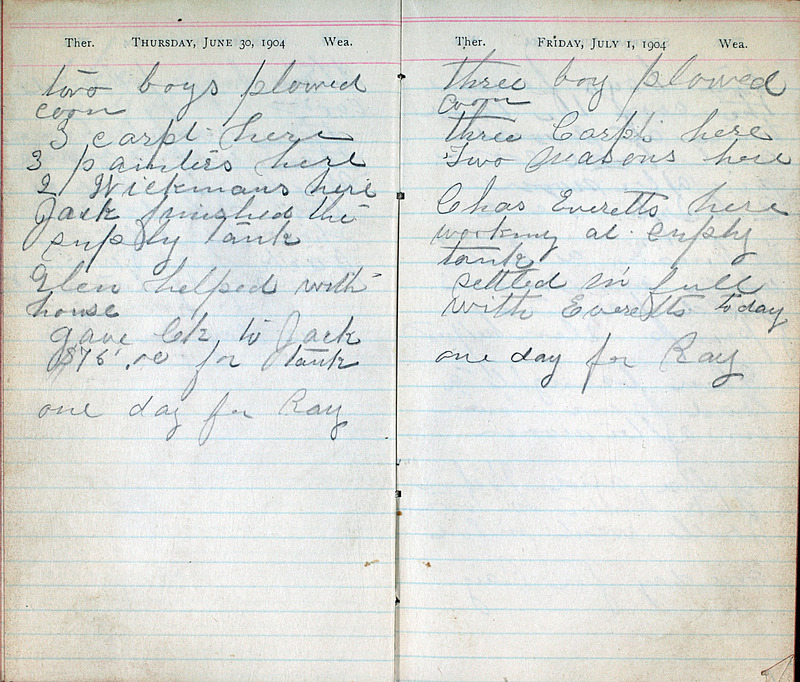 Ther. THURSDAY, JUNE 30, 1904 Wea.
two boys plowed
coon
3 carpt. here
3 painters here
2 Wickmans here
Jack finished the
suply tank
Glen helped with
house
gave Ck to Jack
$76.00 for tank
one day for Ray
Ther. FRIDAY, JULY 1, 1904 Wea.
three boy plowed
coon
three Carpt. here
Two Masons here
Chas Everetts here
working at suply
tank
settled in full
with Everetts today
one day for Ray